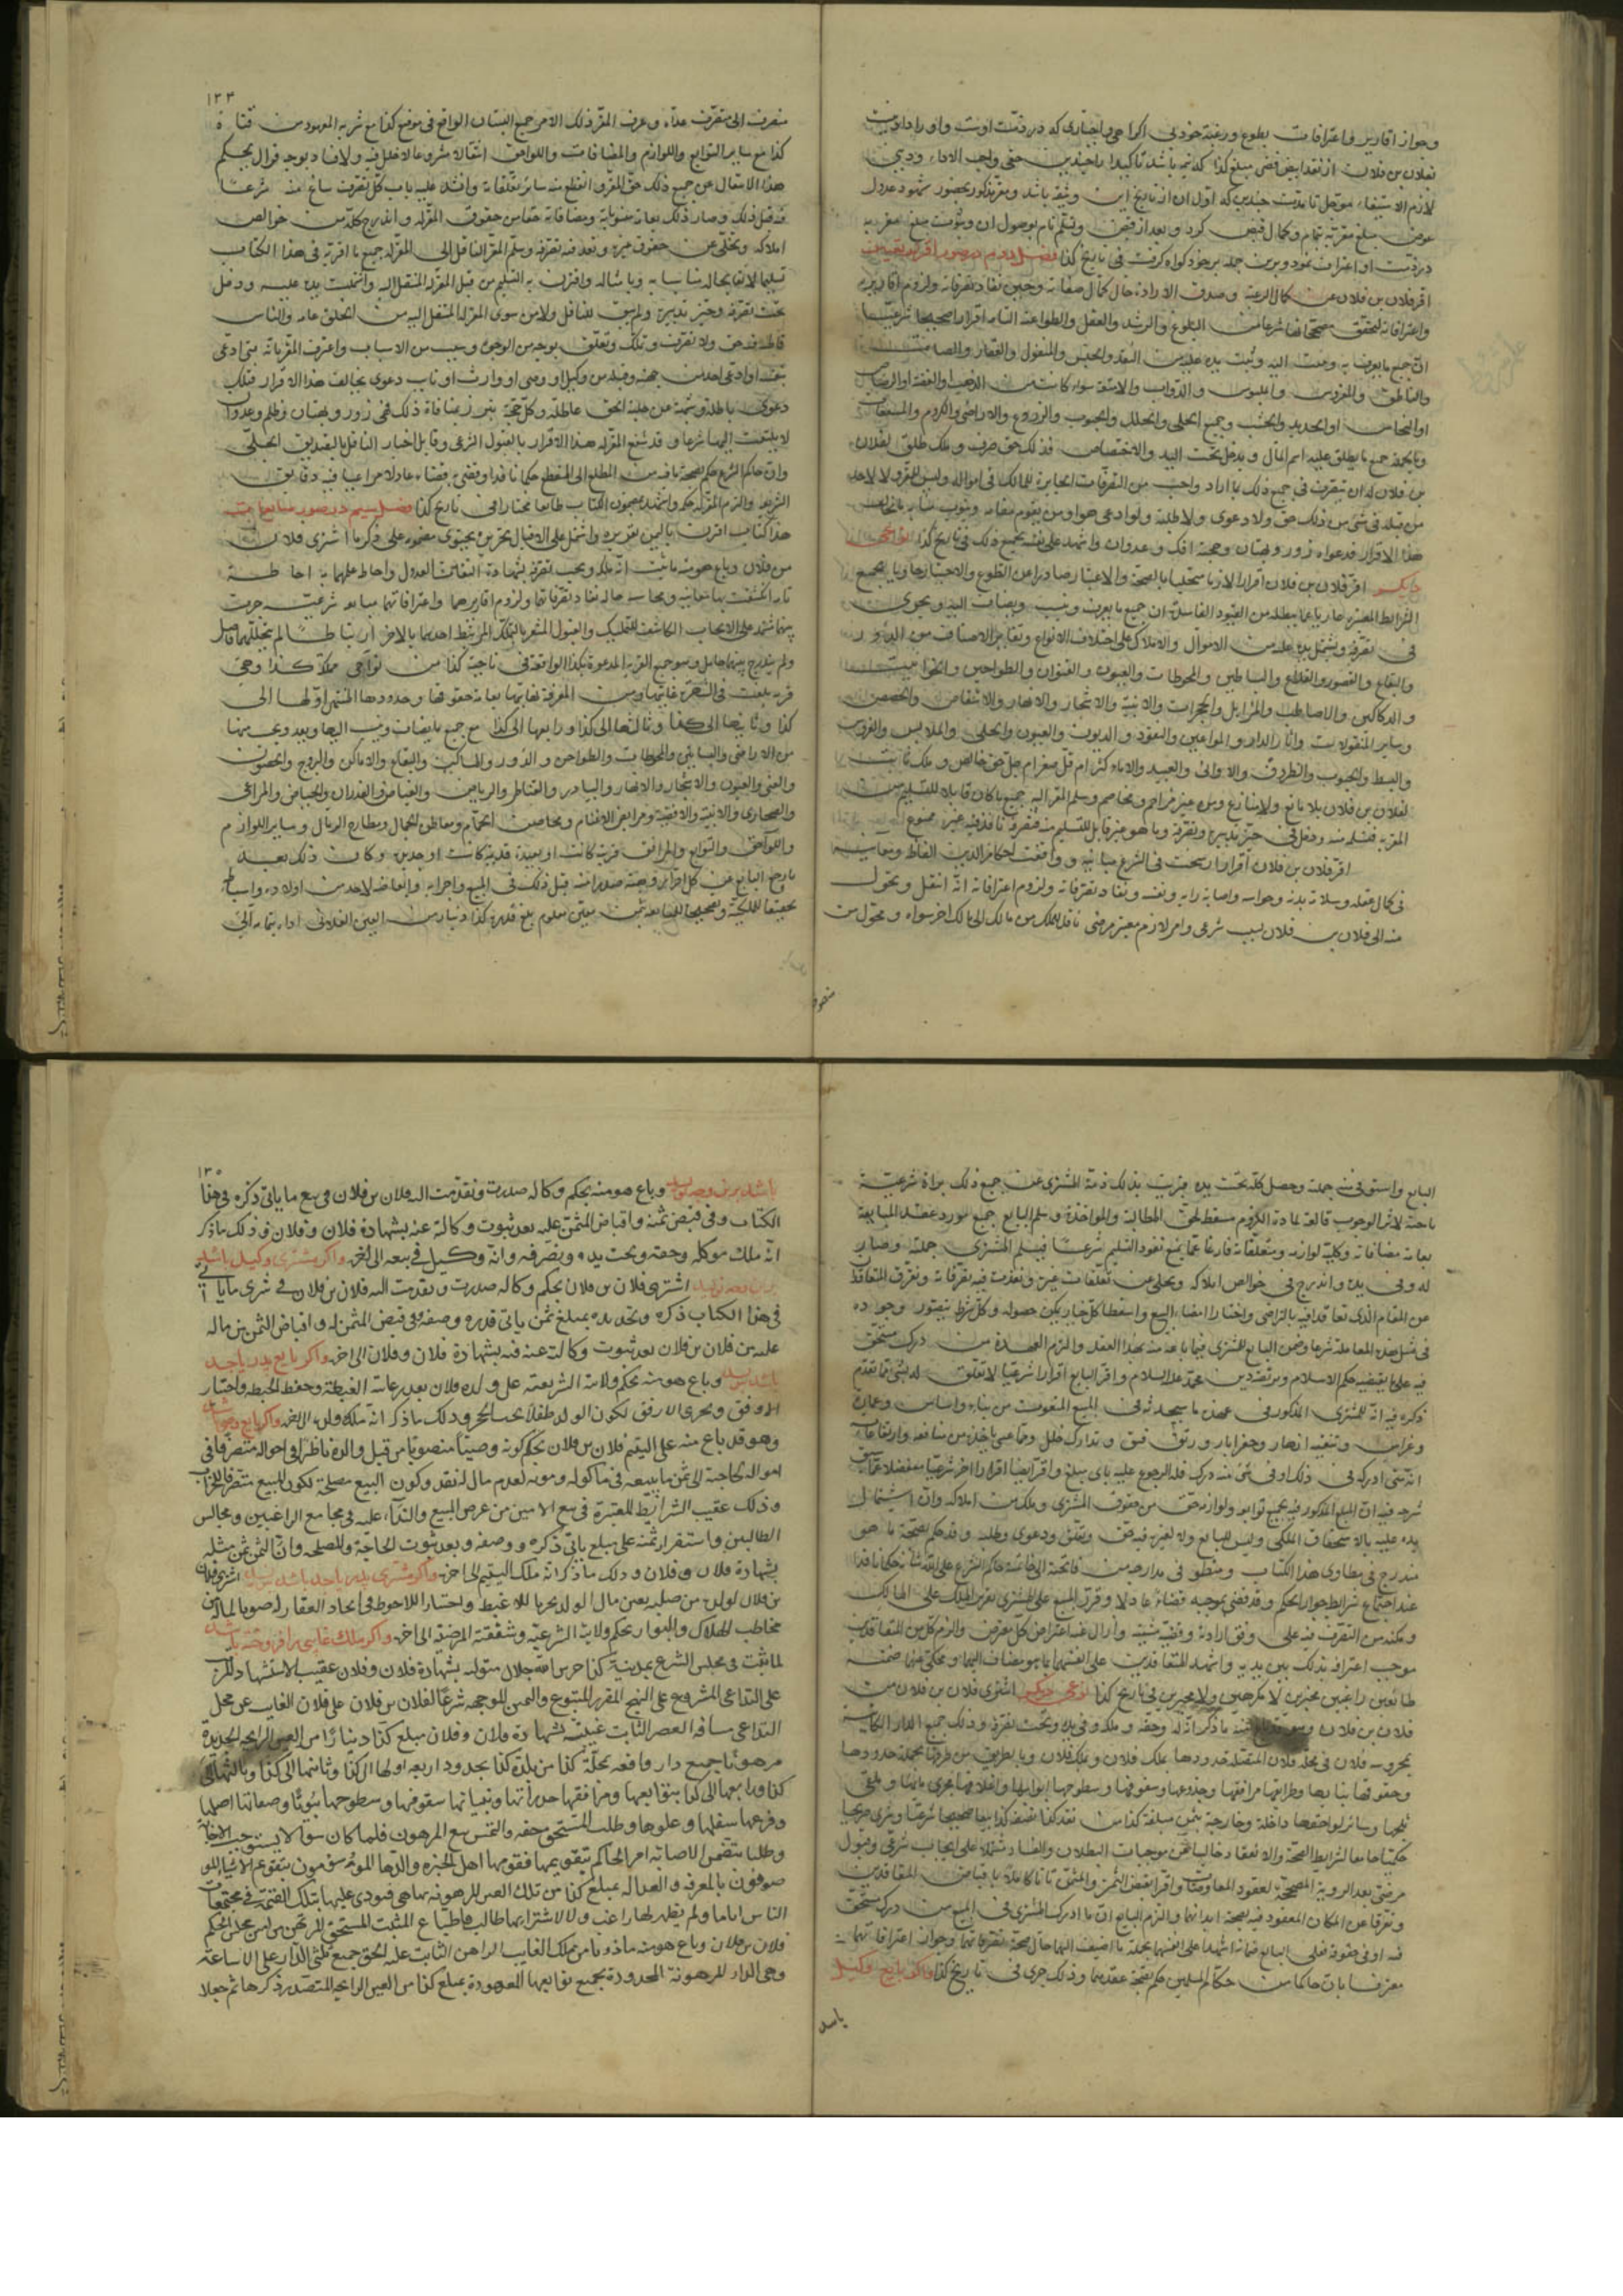 وجواز اقارير واعترافات بطوع ورغبت خود بی اکراهی واجباری که در ذمت اوست واو را دادنیست
بفلان بن فلان از نقد ابیض فضی مبلغ کذا که نیمه باشد تاکیدا را چندین حقی واجب الاداء ودینی
لازم الاستیفاء مؤجل تا مدت چندین که اول آن از تاریخ این وثیقه باشد ومقر مذکور بحضور شهود عدول
عوض مبلغ مقر به تمام وکمال قبض کرد وبعد از قبض وتسلم تام بوصول آن وثبوت مبلغ مقر به
در ذمت او اعتراف نمود وبرین جمله بر خود گواه گرفت فی تاریخ کذا فصل دوم در صور اقرار بعین
اقر فلان بن فلان عن کمال الرغبة وصدق الارادة حال کمال صفاته وحین نفاذ تصرفاته ولزوم اقاریره
واعترافاته لتحقق مصححاتها شرعا من البلوغ والرشد والعقل والطواعیة التامة اقرارا صحیحا شرعیا
ان جمیع ما یعرف به وینسب الیه ویثبت یده علیه من النقد والجنس والمنقول والعقار والصامت
والناطق والمفروش والملبوس والدواب والامتعة سواء کانت من الذهب والفضة او الرصاص
او النحاس او الحدید والخشب وجمیع الحلی والحلل والحبوب والزروع والاراضی والکروم والمستغلات
وبالجملة جمیع ما یطلق علیه اسم المال ویدخل تحت الید والاختصاص فذلک حق صرف وملک طلق لفلان
بن فلان له ان یتصرف فی جمیع ذلک بما اراد واحب من التصرفات الجایزة للمالک فی امواله ولیس للمقر ولا لاحد
من قبله فی شیء من ذلک حق ولا دعوی ولا طلبة ولو ادعی هو او من یقوم مقامه وینوب منابه ما یخالف
هذا الاقرار فدعواه زور وبهتان وحجته افک وعدوان واشهد علی نفسه بجمیع ذلک فی تاریخ کذا نوعی
دیگر اقر فلان بن فلان اقرارا لازما متحلیا بالصحة والاعتبار صادرا عن الطوع والاختیار حاویا لجمیع
الشرایط المعتبرة عاریا عما یبطله من القیود الفاسدة ان جمیع ما یعرف به وینسب ویضاف الیه ویحوی
فی تصرفه ویشتمل یده علیه من الاموال والاملاک علی اختلاف الانواع وتغایر الاصناف من الدور
والبقاع والقصور والقلاع والبساطین والحوطات والعیون والقنوات والطواحین والحوانیت
والدکاکین والاصاطب والمزابل والحجرات والابنیة والاشجار والانهار والاشقاص والحصص
وسایر المنقولات واثاث الدار والمواعین والنقود والدیون والعیون والحلی والملابس والفروش
والبسط والحبوب والظروف والاوانی والعبید والاماء کثر ام قل صغر ام جل حق خالص وملک ثابت
لفلان بن فلان بلا مانع ولا منازع ومن غیر مزاحم ومخاصم وسلم المقر الیه جمیع ما کان قابلا للتسلیم من
المقر به فتسلمه منه ودخل فی حیز تدبیره وتصرفه وما هو غیر قابل للتسلیم منه فتصرفه نافذ فیه غیر ممنوع
اقر فلان بن فلان اقرارا رسخت فی الشرع مبانیه ووافقت احکام الدین الفاظه ومعانیه
فی کمال عقله وسلامة بدنه وحواسه واصابة رایه ونفسه ونفاذ تصرفاته ولزوم اعترافاته انه انتقل وتحول
منه الی فلان بن فلان بسبب شرعی وامر لازم معتبر مرضی ناقل للملک من مالک الی مالک اخر سواه ومحول من
متصرف
١٣٣
متصرف الی متصرف عداه وعرف المقر ذلک الامر جمیع البستان الواقع فی موضع کذا مع شربه المعهود من قناة
کذا مع سایر التوابع واللوازم والمضافات واللواحق انتقالا مشروعا لا خلل فیه ولا فساد بوجه فزال بحکم
هذا الانتقال عن جمیع ذلک حق المقر وانقطع منه سائر تعلقاته وانسد علیه باب کل تصرف سائغ منه شرعا
فیه قبل ذلک وصار ذلک بعامة منسوباته ومضافاته حقا من حقوق المقر له واندرج کله من خوالص
املاکه وتخلی عن حقوق غیره ونفذ فیه تصرفه وسلم المقر الناقل الی المقر له جمیع ما اقر به فی هذا الکتاب
تسلیما لائقا بحاله مناسبا به وبامثاله واقترن به التسلم من قبل المقر له المنتقل الیه واشتملت یده علیه ودخل
تحت تصرفه وحیز تدبیره ولم یبق للناقل ولا من سوی المقر له المنتقل الیه من الخلق عامة والناس
قاطبة فیه حق ولا تصرف وتملک وتعلق بوجه من الوجوه وسبب من الاسباب واعترف المقر بانه متی ادعی
بنفسه او ادعی احد من جهته وقبله من وکیل او وصی او وارث او نایب دعوی یخالف هذا الاقرار فتلک
دعوی باطلة وتهمة من حلیة الحق عاطلة وکل حجة تبرز بمنافاة ذلک فهی زور وبهتان وظلم وعدوان
لا یلتفت الیها شرعا وقد شفع المقر له هذا الاقرار بالقبول الشرعی وقابل اخبار الناقل بالتصدیق الجلی
وان حاکم الشرع حکم بصحة ما فیه من المطلع الی المقطع حکما نافذا وقضی قضاء عادلا مراعیا فیه دقایق
الشریعة والزم المقر له حکمه واشهد بمضمون الکتاب طایعا مختارا فی تاریخ کذا فصل سیم در صور مبایعات
هذا کتاب اقترن بالیمن تقریره واشتمل علی الاقبال تحریره یحتوی مضمونه علی ذکر ما اشتری فلان
من فلان وباع هو منه ما ثبت انه ملکه وتحت تصرفه بشهادة الثقات العدول واحاط علمهما به احاطة
تامة انکشفت بها معایبه ومحاسنه حالة نفاذ تصرفاتهما ولزوم اقاریرهما واعترافاتهما مبایعة شرعیة جرت
بینهما تشتمل علی الایجاب الکاشف للتملیک والقبول المشعر بالتملک المرتبط احدهما بالاخر ارتباطا لم یتخللهما فاصل
ولم یندرج بینهما حایل وهو جمیع القریة المدعوة بکذا الواقعة فی ناحیة کذا من نواحی مملکة کذا وهی
قریة بلغت فی الشهرة غایتها ومن المعرفة نهایتها بعامة حقوقها وحدودها المنتهی اولها الی
کذا وثانیها الی کذا وثالثها الی کذا ورابعها الی کذا مع جمیع ما یضاف وینسب الیها ویعد ویحسب منها
من الاراضی والبساتین والحوطات والطواحن والدور والمساکن والبقاع والاماکن والبروج والحصون
والقنی والعیون والاشجار والانهار والبیادر والقناطر والریاض والغیاض والغدران والحیاض والمراعی
والصحاری والابنیة والافنیة ومرابض الاغنام ومحاضن الحمام ومعاطن الجمال ومطارح الرمال وسایر اللوازم
واللواحق والتوابع والمرافق قریبة کانت او بعیدة قدیمة کانت او جدیدة وکان ذلک بعد
ما رجع البایع عن کل اقرار وهبة صدرا منه قبل ذلک فی المبیع واجزایه وابعاضه لاحد من اولاده واسباطه
تحقیقا للملکیة وتصحیحا للمبایعة بثمن معین معلوم بلغ قدره کذا دینارا من العین الفلانی اداه بتمامه الی
١٣٥
البایع واستوفی منه جملته وحصل کله تحت یده فبرئت بذلک ذمة المشتری عن جمیع ذلک براءة شرعیة
ماحیة لاثر الوجوب قالعة لمادة اللزوم مسقطة لحق المطالبة والمواخذة وسلم البایع جمیع مورد عقد المبایعة
بعامة مضافاته وکلیة لوازمه ومتعلقاته فارغا عما یمنع نفوذ التسلیم شرعا فتسلم المشتری جملته وصار
له وفی یده واندرج فی خوالص املاکه وتخلی عن تعلقات غیره ونفذت فیه تصرفاته وتفرق المتعاقدان
عن المقام الذی تعاقدا فیه بالتراضی واختارا امضاء البیع واسقطا کل خیار یمکن حصوله وکل شرط یتصور وجوده
فی مثل هذه المعاملة شرعا وضمن البایع للمشتری فیما باعه منه بهذا العقد والزم العهدة من درک مستحق
فیه علی ما یقتضیه حکم الاسلام ویرتضیه دین محمد علیه السلام واقر البایع اقرارا شرعیا لا تعلق له بشیء مما تقدم
ذکره فیه انه للمشتری المذکور فی عهدة ما سیحدثه فی المبیع المنعوت من بناء واساس وعمارة
وغراس وتنقیة انهار وحفر ابار ورتق فتق وتدارک خلل وعما عسی یاخذه من منافعه وارتفاعاته
انه متی ادرکه فی ذلک او فی شیء منه درک فله الرجوع علیه بای مبلغ واقر ایضا اقرارا اخر شرعیا منفصلا عما سبق
شرحه فیه ان المبیع المذکور فیه بجمیع توابعه ولوازمه حق من حقوق المشتری وملک من املاکه وان اشتمال
یده علیه بالاستحقاق الملکی ولیس للبایع ولا لغیره فیه حق وتعلق ودعوی وطلبة وقد حکم بصحة ما هو
مندرج فی مطاوی هذا الکتاب ومنطو فی مدارجه من فاتحته الی خاتمته حاکم الشرع علی الله شانه حکما نافذا
عند اجتماع شرایط جواز الحکم وقد قضی بموجبه قضاء عادلا وقرر المبیع علی المشتری تقریر الملک علی المالک
ومکنه من التصرف فیه علی وفق ارادته وقضیة مشیته وازال عنه اعتراض کل معترض والزم کل من المتعاقدین
موجب اعترافه بذلک بین یدیه واشهد المتعاقدین علی انفسهما بما هو مضاف الیهما ومحکی عنهما ضمنه
طائعین راغبین مخیرین لا مکرهین ولا مجبرین فی تاریخ کذا نوعی دیگر اشتری فلان بن فلان من
فلان بن فلان ما ذکر انه له وحقه وملکه وفی یده وتحت تصرفه وذلک جمیع الدار الکاینة
بمحروسة فلان فی محلة فلان المتصلة حدودها بملک فلان وملک فلان وبالطریق من طرفیها بجملة حدودها
وحقوقها وبنائها وطرایقها ومرافقها وجذوعها وسقوفها وسطوحها وابوابها واغلاقها ومجری مائها وملقی
ثلجها وسائر لواحقها داخلة وخارجة بثمن مبلغه کذا من نقد کذا نصفه کذا بیعا صحیحا شرعیا وشری صریحا
حکمیا جامعا لشرایط الصحة والانعقاد خالیا عن موجبات البطلان والفساد مشتملا علی ایجاب شرعی وقبول
مرضی بعد الرؤیة المصححة لعقود المعاوضات واقرا بقبض الثمن والمثمن تاما کاملا باقباض المتعاقدین
وتفرقا عن المکان المعقود فیه بصحة ابدانهما والزم البایع ان ما ادرک المشتری فی المبیع من درک مستحق
فیه او فی حقوقه فعلی البایع ضمانه اشهدا علی انفسهما بجملة ما اضیف الیهما حال صحة تصرفاتهما وجواز اعترافاتهما
معترفا بان حاکما من حکام المسلمین حکم بصحة عقدهما وذلک جری فی تاریخ کذا واکر بایع وکیل
باشد
باشد برین وجه نویسد وباع هو منه بحکم وکالة صدرت ونفذت الیه فلان بن فلان فی بیع ما یاتی ذکره فی هذا
الکتاب وفی قبض ثمنه واقباض المثمن علیه بعد ثبوت وکالته عنه بشهادة فلان وفلان وذلک ما ذکر
انه ملک موکله وحقه وتحت یده وتصرفه وانه وکیل فی بیعه الی اخره واکر مشتری وکیل باشد
برین وجه نویسد اشتری فلان بن فلان بحکم وکالة صدرت ونفذت الیه فلان بن فلان فی شری ما یاتی
فی هذا الکتاب ذکره وتحدیده بمبلغ ثمن یاتی قدره وصفته وفی قبض المثمن له واقباض الثمن من ماله
علیه من فلان بن فلان بعد ثبوت وکالته عنه فیه بشهادة فلان وفلان الی اخره واکر بایع پدر یا جد
باشد وباع هو منه بحکم ولایته الشرعیة علی ولده فلان بعد رعایة الغبطة وحفظ الحیطة واختیار
الاوفق وتحری الارفق لکون الولد طفلا تحت الحجر وذلک ما ذکر انه ملک ولده الی اخره واکر بایع وصی باشد
وهو قد باع منه علی الیتیم فلان بن فلان بحکم کونه وصیا منصوبا من قبل والده ناظرا فی احواله متصرفا فی
امواله لحاجته الی ثمن ما یبیعه فی ماکوله ومونه لعدم مال له نقد وکون البیع مصلحة لکون المبیع متصرفا للخراب
وذلک عقیب الشرایط المعتبرة فی بیع الامین من عرض المبیع والنداء علیه فی مجامع الراغبین ومجالس
الطالبین واستقرار ثمنه علی مبلغ یاتی ذکره ووصفه وبعد ثبوت الحاجة والمصلحة وان الثمن ثمن مثله
بشهادة فلان وفلان وذلک ما ذکر انه ملک الیتیم الی اخره واکر مشتری پدر یا جد باشد اشتری فلان
بن فلان لولده من صلبه بعین مال الولد تحریا للاغبط واختیارا للاحوط فی اتخاذ العقار له صونا لماله من
مخاطب الهلاک والبوار بحکم ولایته الشرعیة وشفقته المرضیة الی اخره واکر ملک غایبی را فروخته باشد
لما ثبت فی مجلس الشرع بمدینة کذا حرس الله جلال متولیه بشهادة فلان وفلان عقیب الاستشهاد المرتب
علی التداعی المشروع علی النهج المقرر المتبوع والیمین الموجهة شرعا لفلان بن فلان علی فلان الغایب عن محل
التداعی مسافة العصر الثابت غیبته بشهادة فلان وفلان مبلغ کذا دینارا من العین الرابحة الجدیدة
مرهونا بجمیع دار واقعة بمحلة کذا من بلدة کذا بحدود اربعة اولها الی کذا وثانیها الی کذا وثالثها الی
کذا ورابعها الی کذا بتوابعها ومرافقها جدرانها وبقیاتها سقوفها وسطوحها بیوتا وصفاتها اصلها
وفرعها سفلها وعلوها وطلب المستحق حقه والتمس بیع المرهون فلما کان سؤالا یستوجب الاجابة
وطلبا یتضمن الاصابة امر الحاکم بتقویمها فقومها اهل الخبرة والدها المؤتمنون بتقویم الاشیاء
موصوفون بالمعرفة والعدالة بمبلغ کذا من تلک العین المرهونة بها هی فنودی علیها بتلک القیمة فی مجتمعات
الناس ایاما ولم یظهر لها راغب ولا لاشترائها طالب فابتاع المثبت المستحق المرتهن من امین مجلس الحکم
فلان بن فلان وباع هو منه ماذونا من تملک الغایب الراهن الثابت علیه الحق جمیع ثلثی الدار علی الاشاعة
وهی الدار المرهونة المحدودة بجمیع توابعها المعهودة بمبلغ کذا من العین الرابحة المتصدر ذکرها ثم جعلا